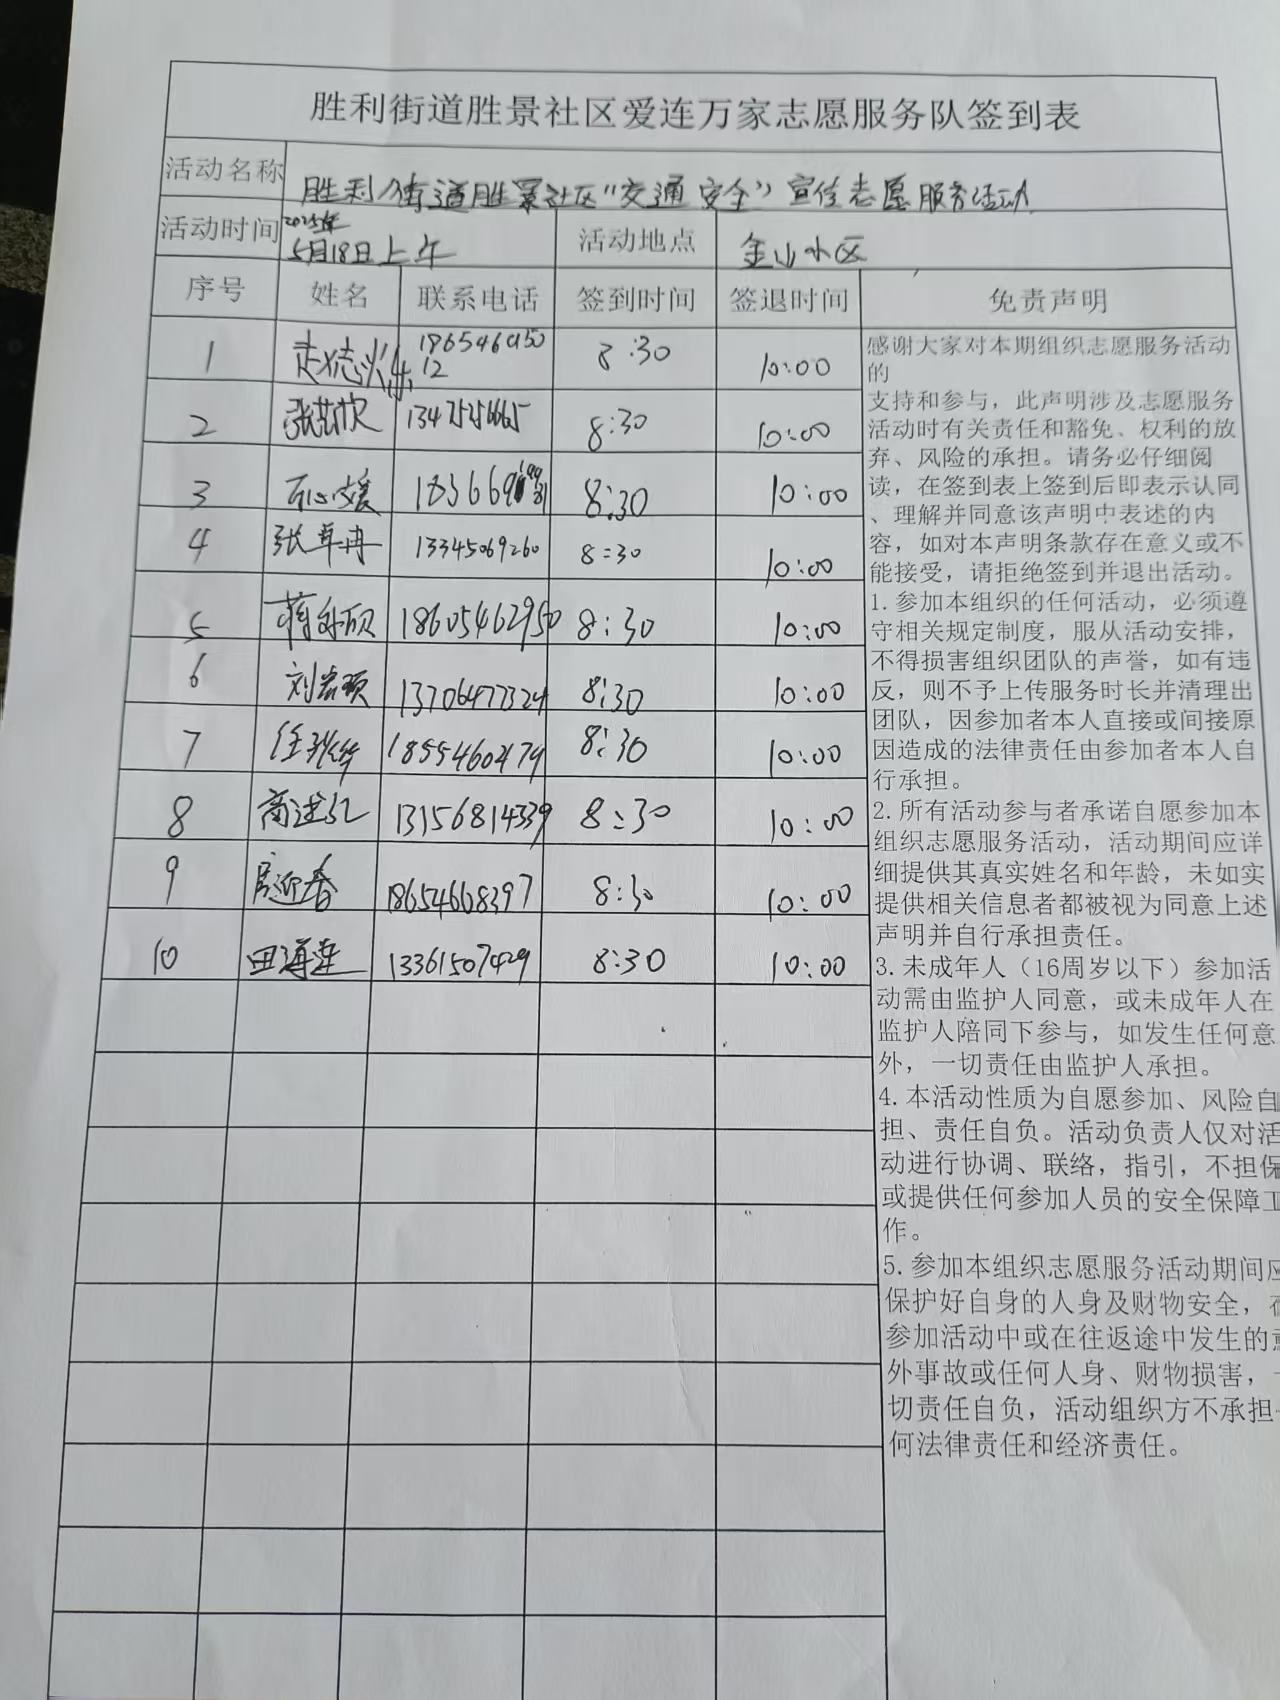 胜利街道胜景社区爱连万家志愿服务队签到表
活动名称 胜利街道胜景社区“交通安全”宣传志愿服务活动
活动时间 2025年 5月18日上午 活动地点 金山小区
序号 姓名 联系电话 签到时间 签退时间 免责声明
1 8:30 10:00
2 8:30 10:00
3 8:30 10:00
4 张草冉 13345069260 8:30 10:00
5 18605462950 8:30 10:00
6 13706477324 8:30 10:00
7 18554602179 8:30 10:00
8 13156814339 8:30 10:00
9 房迎春 18654668397 8:30 10:00
10 田海莲 13361507429 8:30 10:00
感谢大家对本期组织志愿服务活动
的
支持和参与，此声明涉及志愿服务
活动时有关责任和豁免、权利的放
弃、风险的承担。请务必仔细阅
读，在签到表上签到后即表示认同
、理解并同意该声明中表述的内
容，如对本声明条款存在意义或不
能接受，请拒绝签到并退出活动。
1.参加本组织的任何活动，必须遵
守相关规定制度，服从活动安排，
不得损害组织团队的声誉，如有违
反，则不予上传服务时长并清理出
团队，因参加者本人直接或间接原
因造成的法律责任由参加者本人自
行承担。
2.所有活动参与者承诺自愿参加本
组织志愿服务活动，活动期间应详
细提供其真实姓名和年龄，未如实
提供相关信息者都被视为同意上述
声明并自行承担责任。
3.未成年人（16周岁以下）参加活
动需由监护人同意，或未成年人在
监护人陪同下参与，如发生任何意
外，一切责任由监护人承担。
4.本活动性质为自愿参加、风险自
担、责任自负。活动负责人仅对活
动进行协调、联络，指引，不担保
或提供任何参加人员的安全保障工
作。
5.参加本组织志愿服务活动期间应
保护好自身的人身及财物安全，在
参加活动中或在往返途中发生的意
外事故或任何人身、财物损害，一
切责任自负，活动组织方不承担
何法律责任和经济责任。